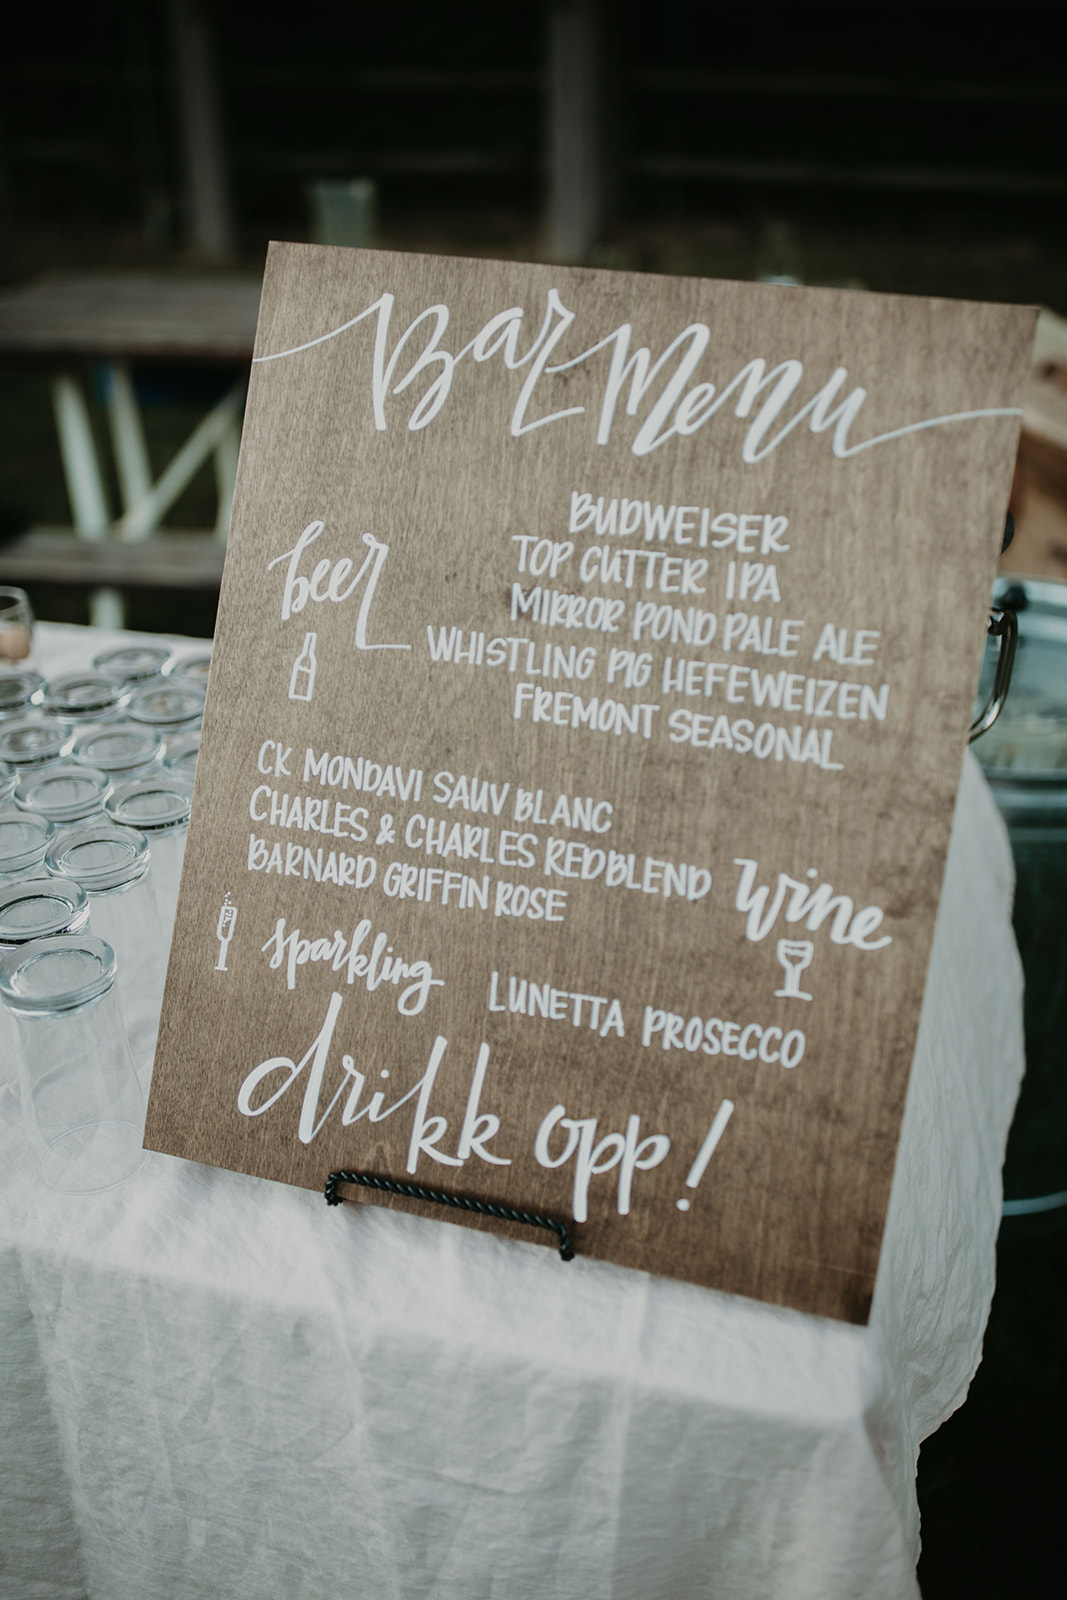 Bar Menu
beer
BUDWEISER
TOP CUTTER IPA
MIRROR POND PALE ALE
WHISTLING PIG HEFEWEIZEN
FREMONT SEASONAL
CK MONDAVI SAUV BLANC
CHARLES & CHARLES RED BLEND
BARNARD GRIFFIN ROSE
wine
sparkling
LUNETTA PROSECCO
drikk opp!